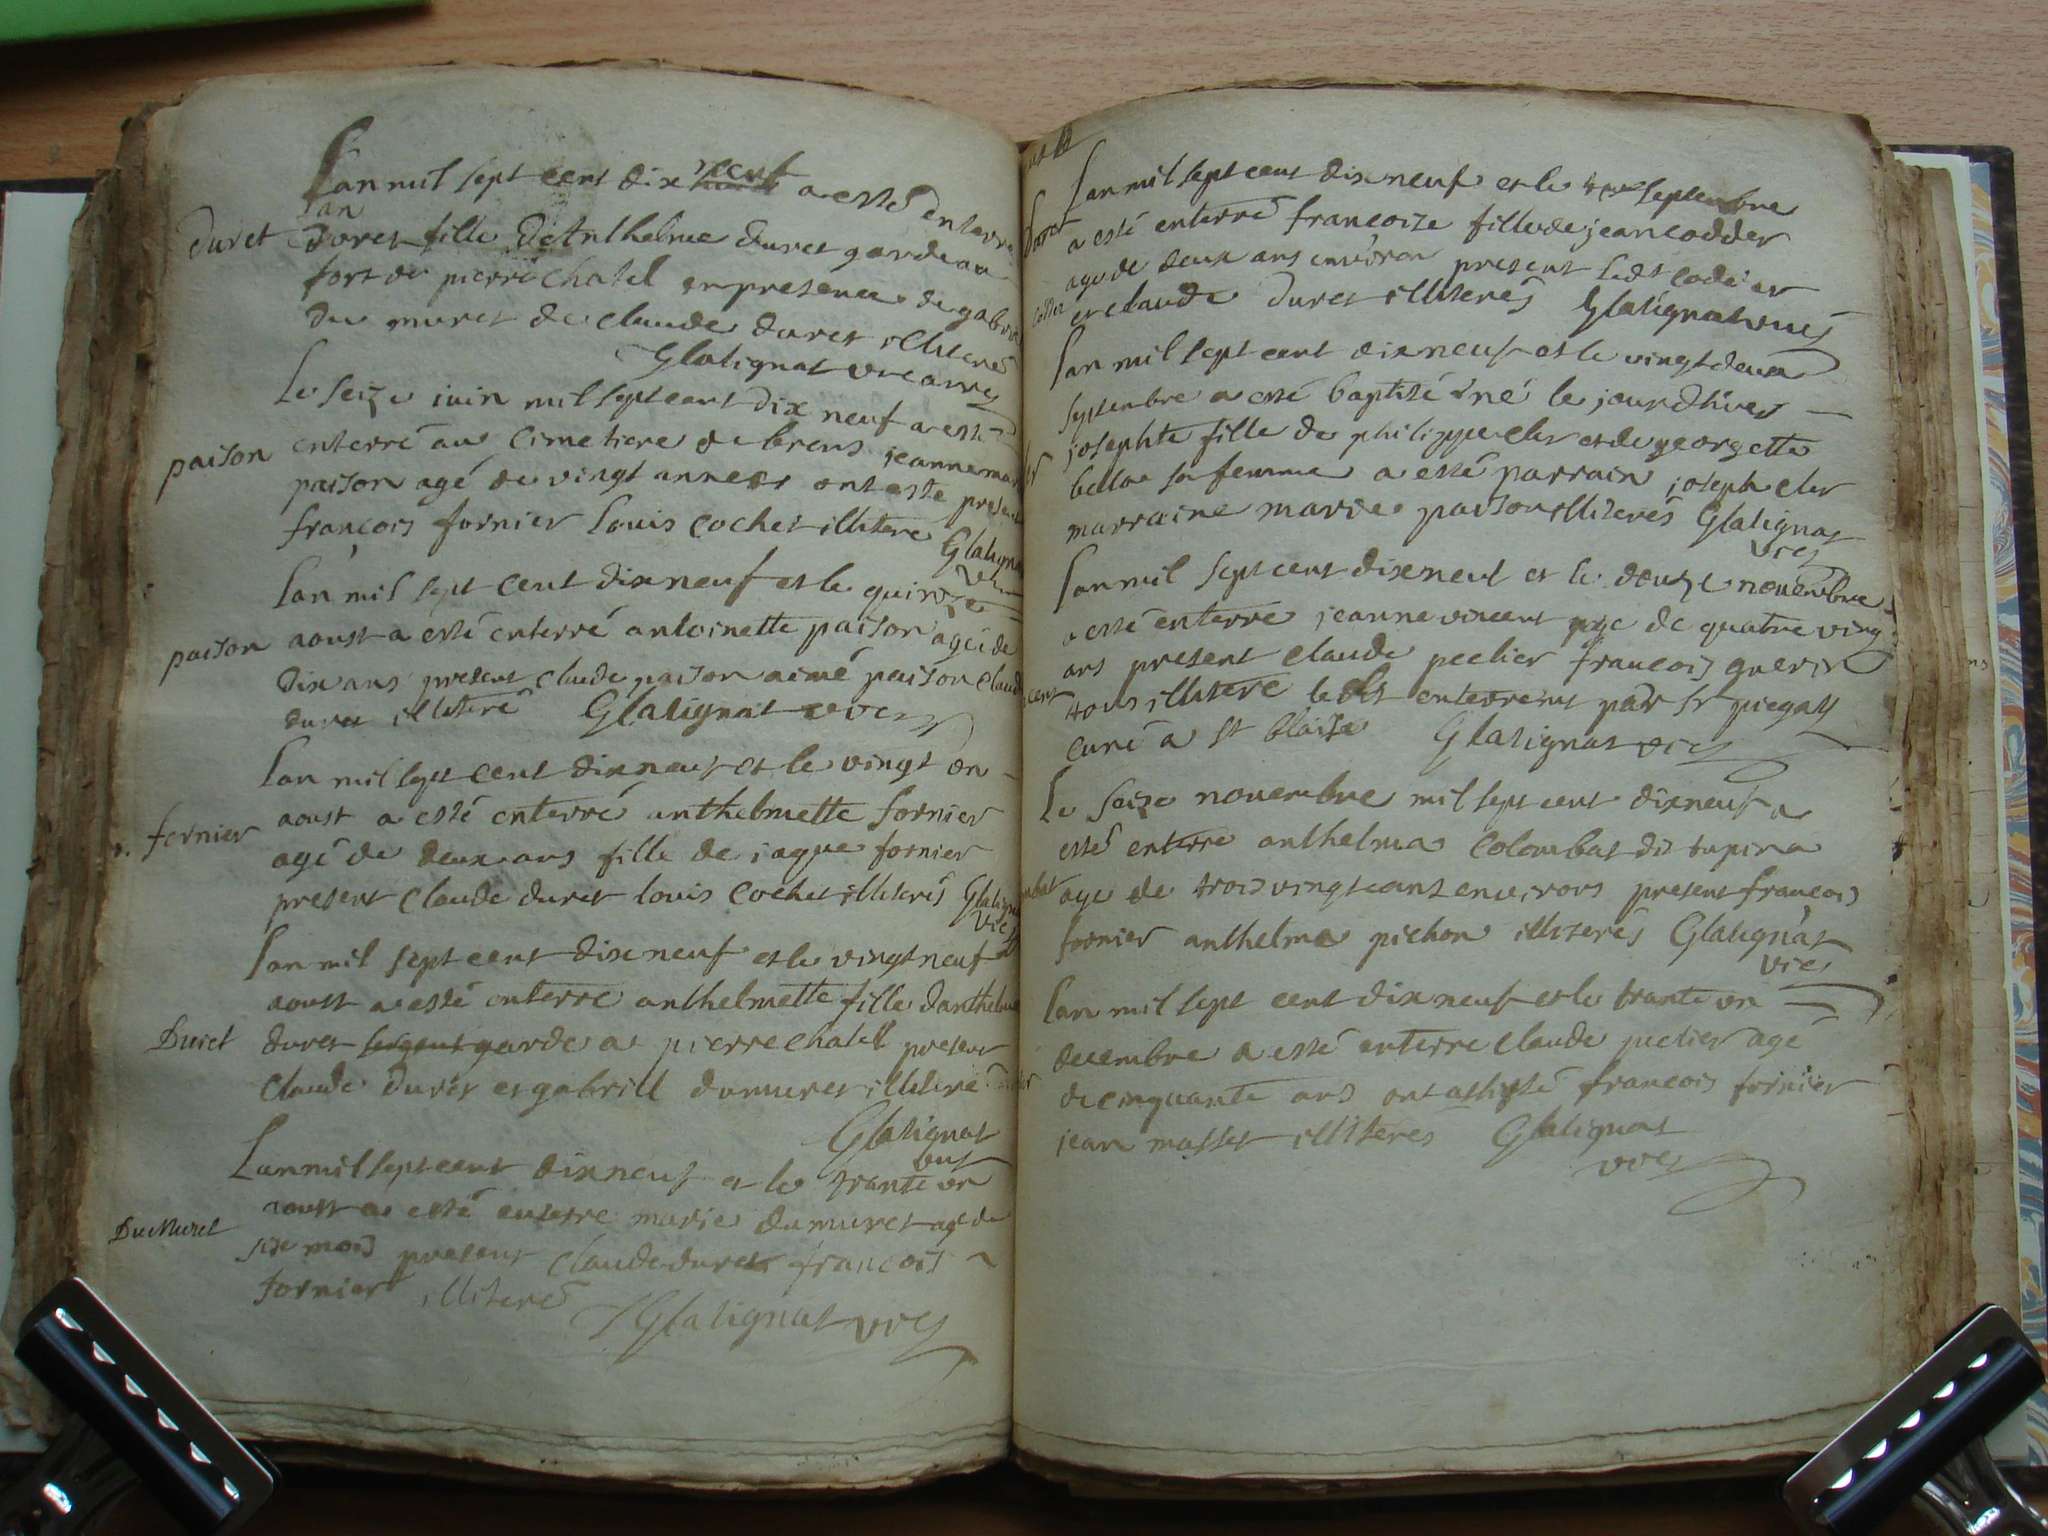 Lan mil sept cent dix neuf a esté enterré
Duret
duret fille De Anthelme duret garde au
fort de pierre chatel en presence de gabriel
du muret de claude duret illiteré
Glatignat vicaire
Le seize iuin mil sept cent dix neuf a esté
paison
enterré au cimetiere de brens jeanne marie
paison agé de vingt annees ont este present
françois fornier louis cochet illiteré Glatignat
vic
Lan mil sept cent dix neuf et le quinze
paison
aoust a esté enterré antoinette paison agéi de
dix ans present claude paison aimé paison claude
duret illiteré Glatignat vic
Lan mil sept cent dix neuf et le vingt on
fornier
aoust a esté enterré anthelmette fornier
agé de deux ans fille de iaque fornier
present claude duret louis cochet illiterés Glatignat
vic
Lan mil sept cent dix neuf et le vingt neuf
aoust a esté enterré anthelmette fille danthelme
Duret
duret garde a pierre chatel present
claude duret et gabrill dumuret illiteré
Glatignat
vic
Lan mil sept cent dix neuf et le trante un
aoust a esté enterré marie dumuret agé de
Du Muret
six mois present claude duret francois
fornier illiteré
Glatignat vic
Lan mil sept cent dix neuf et le septembre
a esté enterré francoize fille de jean codder
age de deux ans environ present ledt codder
et claude duret illiterés Glatignat vic
Lan mil sept cent dix neuf et le vingt deux
septembre a esté baptisé & né le jour dhier
josephte fille de philippe cler et de georgette
sa femme a esté parrain joseph cler
marraine marie paison illiterés Glatignat
vic
Lan mil sept cent dix neuf et le douze novembre
a esté enterré jeanne vincent age de quatre ving
ans present claude peclier francois guerin
tous illiteré par sr piegay
curé a st blaize Glatignat vic
Le seize novembre mil sept cent dix neuf a
esté enterré anthelma colombat dit tupina
age de trois vingt ans environs present francois
fornier anthelme pichon illiterés Glatignat
vic
Lan mil sept cent dix neuf et le trante un
decembre a esté enterré claude peclier agé
de cinquante ans ont assisté francois fornier
jean masset illiteres Glatignat
vic